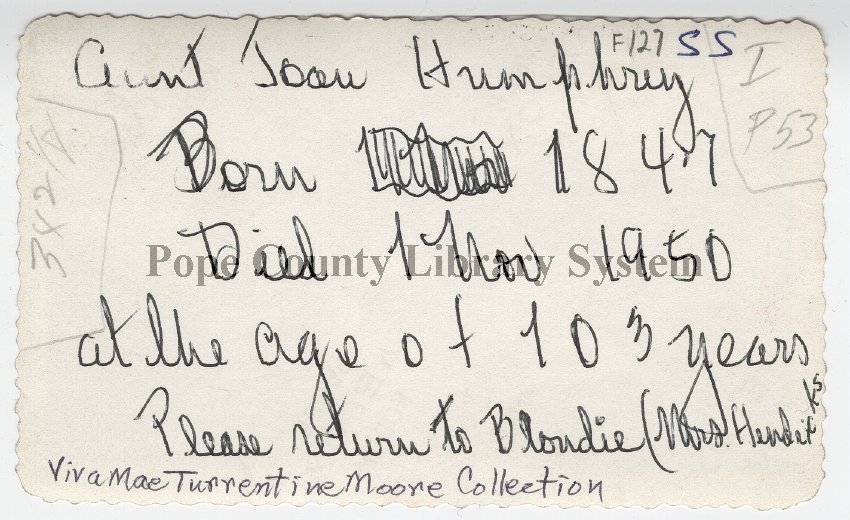 F127 SS
Aunt Joan Humphrey
I
P53
Born 1847
342
Died 1 Nov 1950
Pope County Library System
at the age of 103 years
Please return to Blondie (Mrs. Hendit
ks
Viva Mae Turrentine Moore Collection